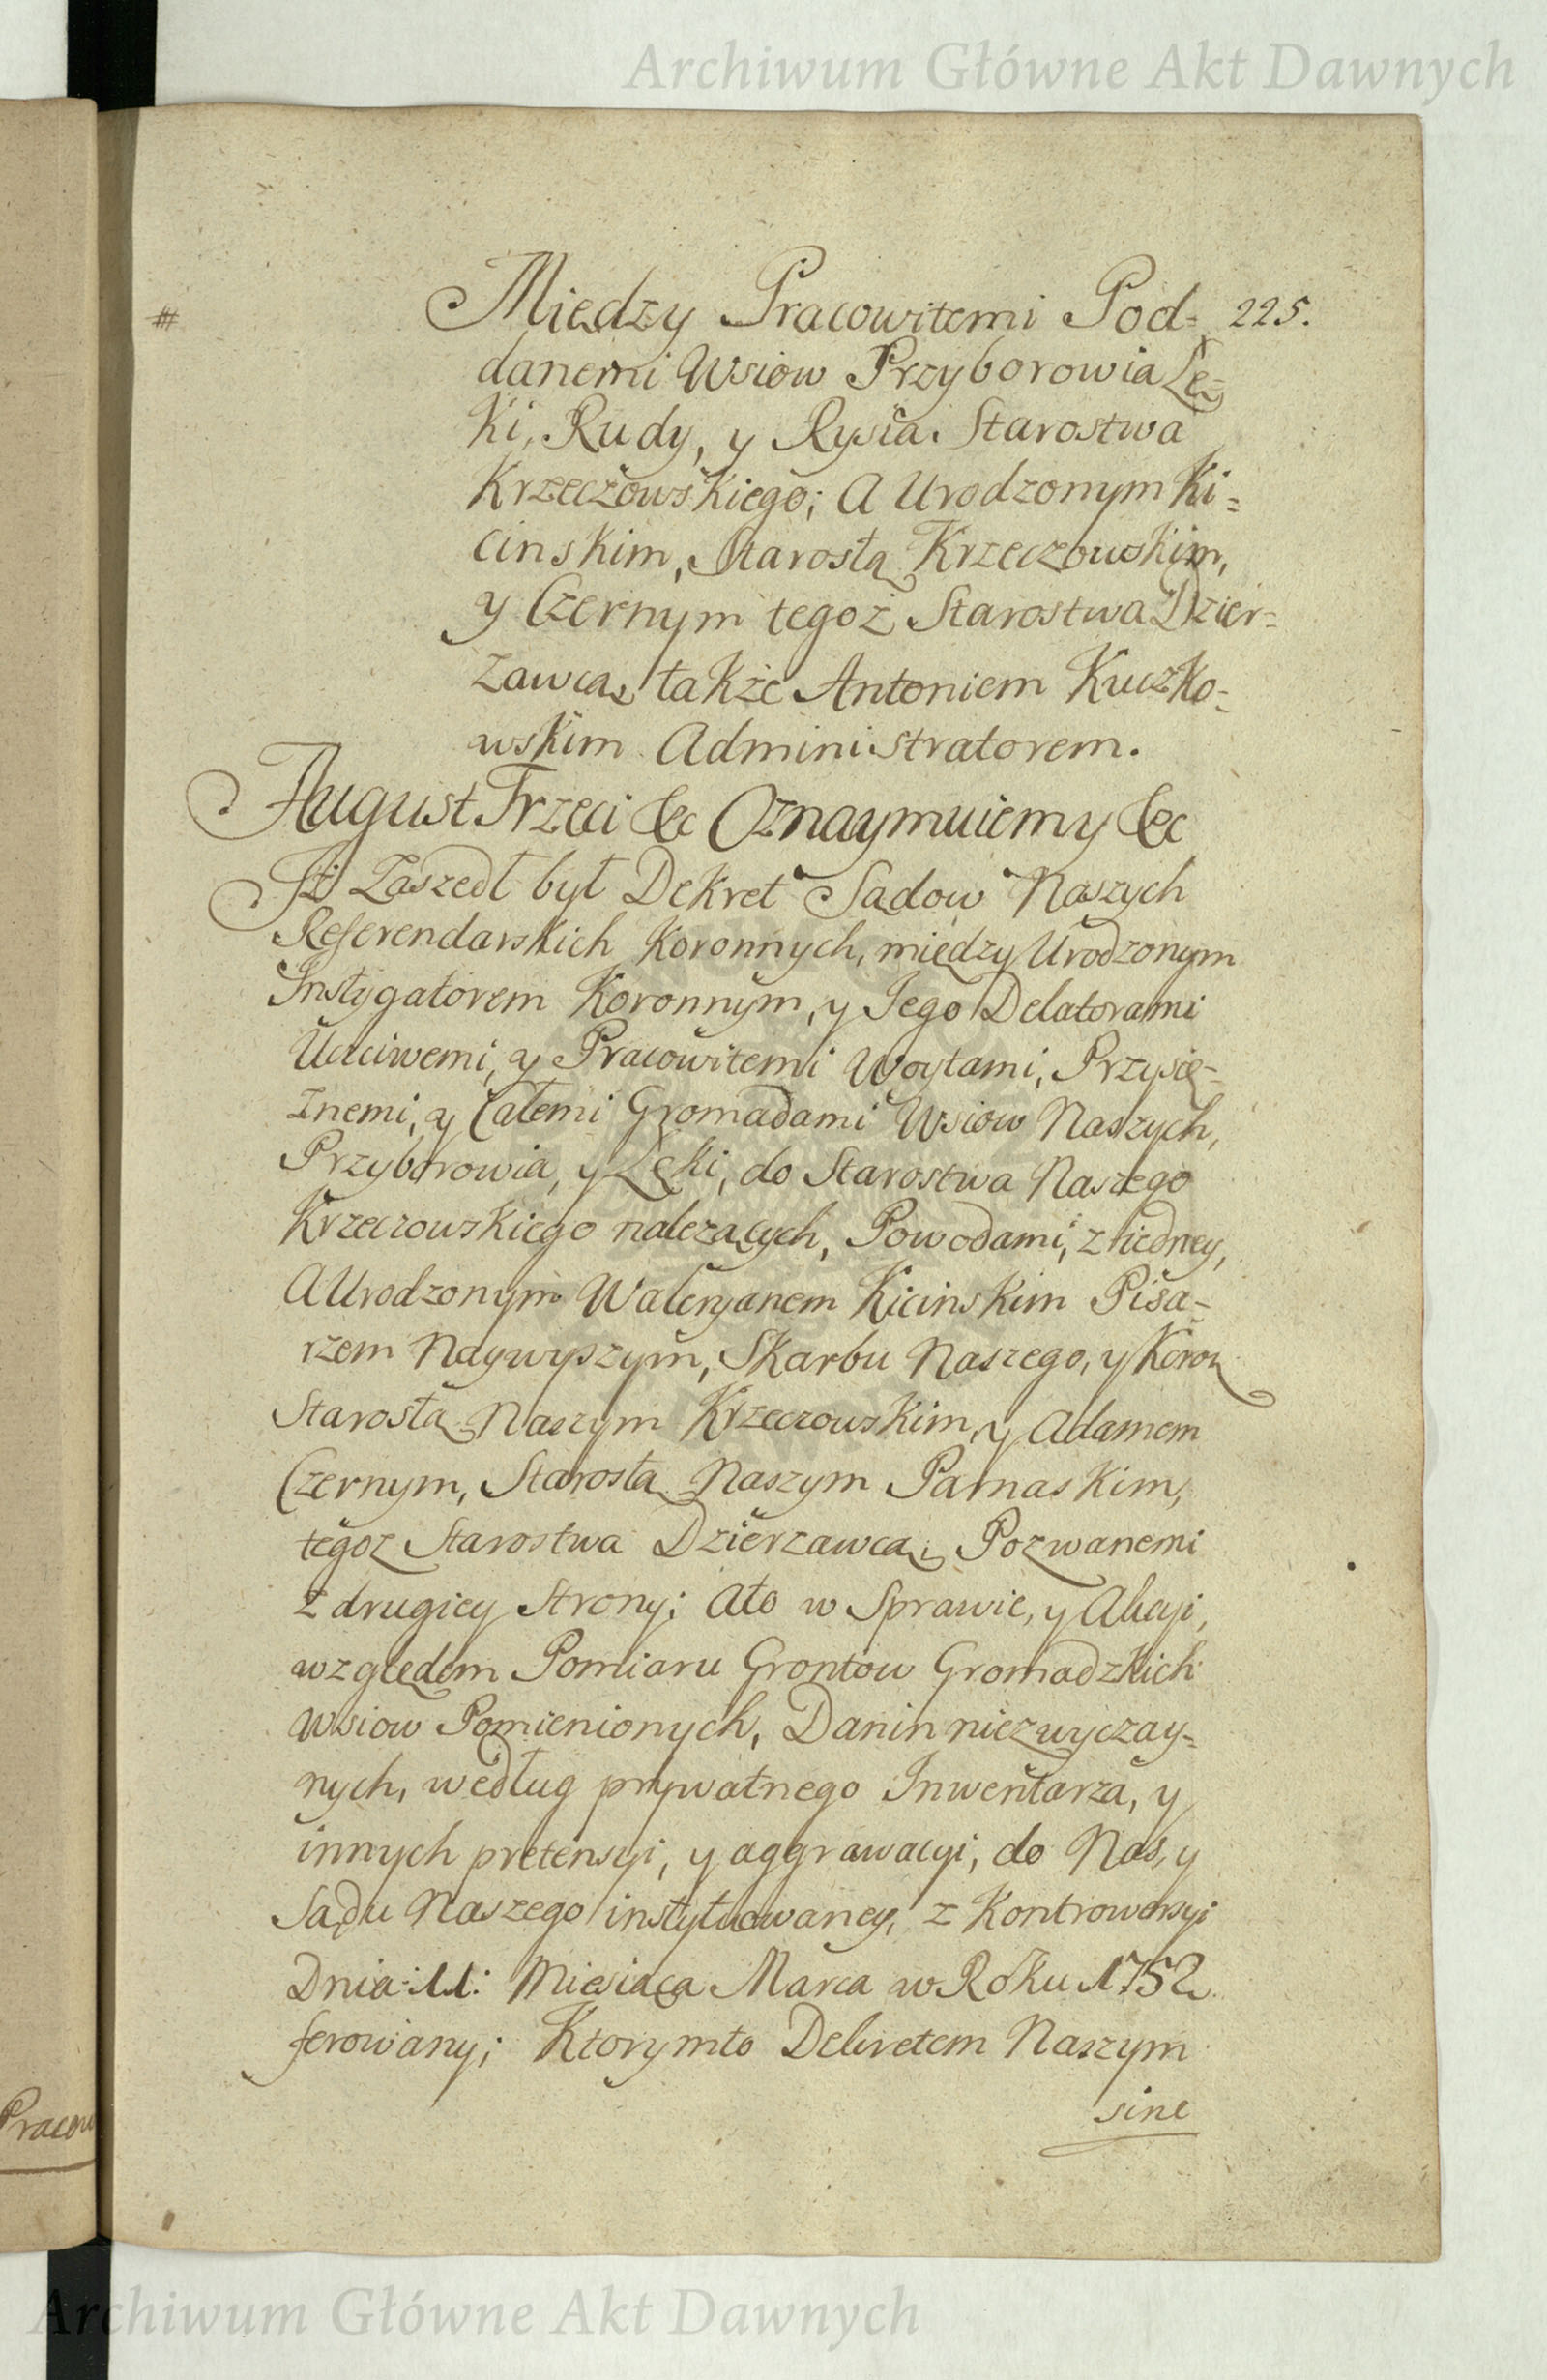 Archiwum Główne Akt Dawnych
#
Między Pracowitemi Pod= 225.
danemi Wsiow Przyborowia Lę=
ki, Rudy, y Rysia Starostwa
Krzeczowskiego; A Urodzonym Ki=
cinskim, Starostą Krzeczowskim,
y Czernym tegoż Starostwa Dzier=
zawcą, także Antoniem Kuczko-
wskim Administratorem.
August Trzeci &c Oznaymuiemy &c
Iż Zaszedł był Dekret Sądow Naszych
Referendarskich Koronnych, między Urodzonym
Instygatorem Koronnym, y Iego Delatorami
Uczciwemi, y Pracowitemi Woytami, Przysię-
znemi, y Całemi Gromadami Wsiow Naszych,
Przyborowia, y Lęki, do Starostwa Naszego
Krzeczowskiego nalezących, Powodami, z iedney,
A Urodzonym Waleryanem Kicinskim Pisa-
rzem Naywyszym, Skarbu Naszego, y Koron
Starostą Naszym Krzeczowskim, y Adamem
Czernym, Starostą Naszym Parnaskim,
tegoz Starostwa Dzierzawcą, Pozwanemi
z drugiey Strony; Ato w Sprawie, y Akcyi,
względem Pomiaru Grontow Gromadzkich
Wsiow Pomienionych, Danin niezwyczay=
nych, według prywatnego Inwentarza, y
innych pretensyi, y aggrawacyi, do Nas, y
Sądu Naszego instytuowaney, z Kontrowersyi
Dnia 11: Miesiąca Marca w Roku 1752
ferowany; Ktorymto Dekretem Naszym
sine
Pracow
Archiwum Główne Akt Dawnych